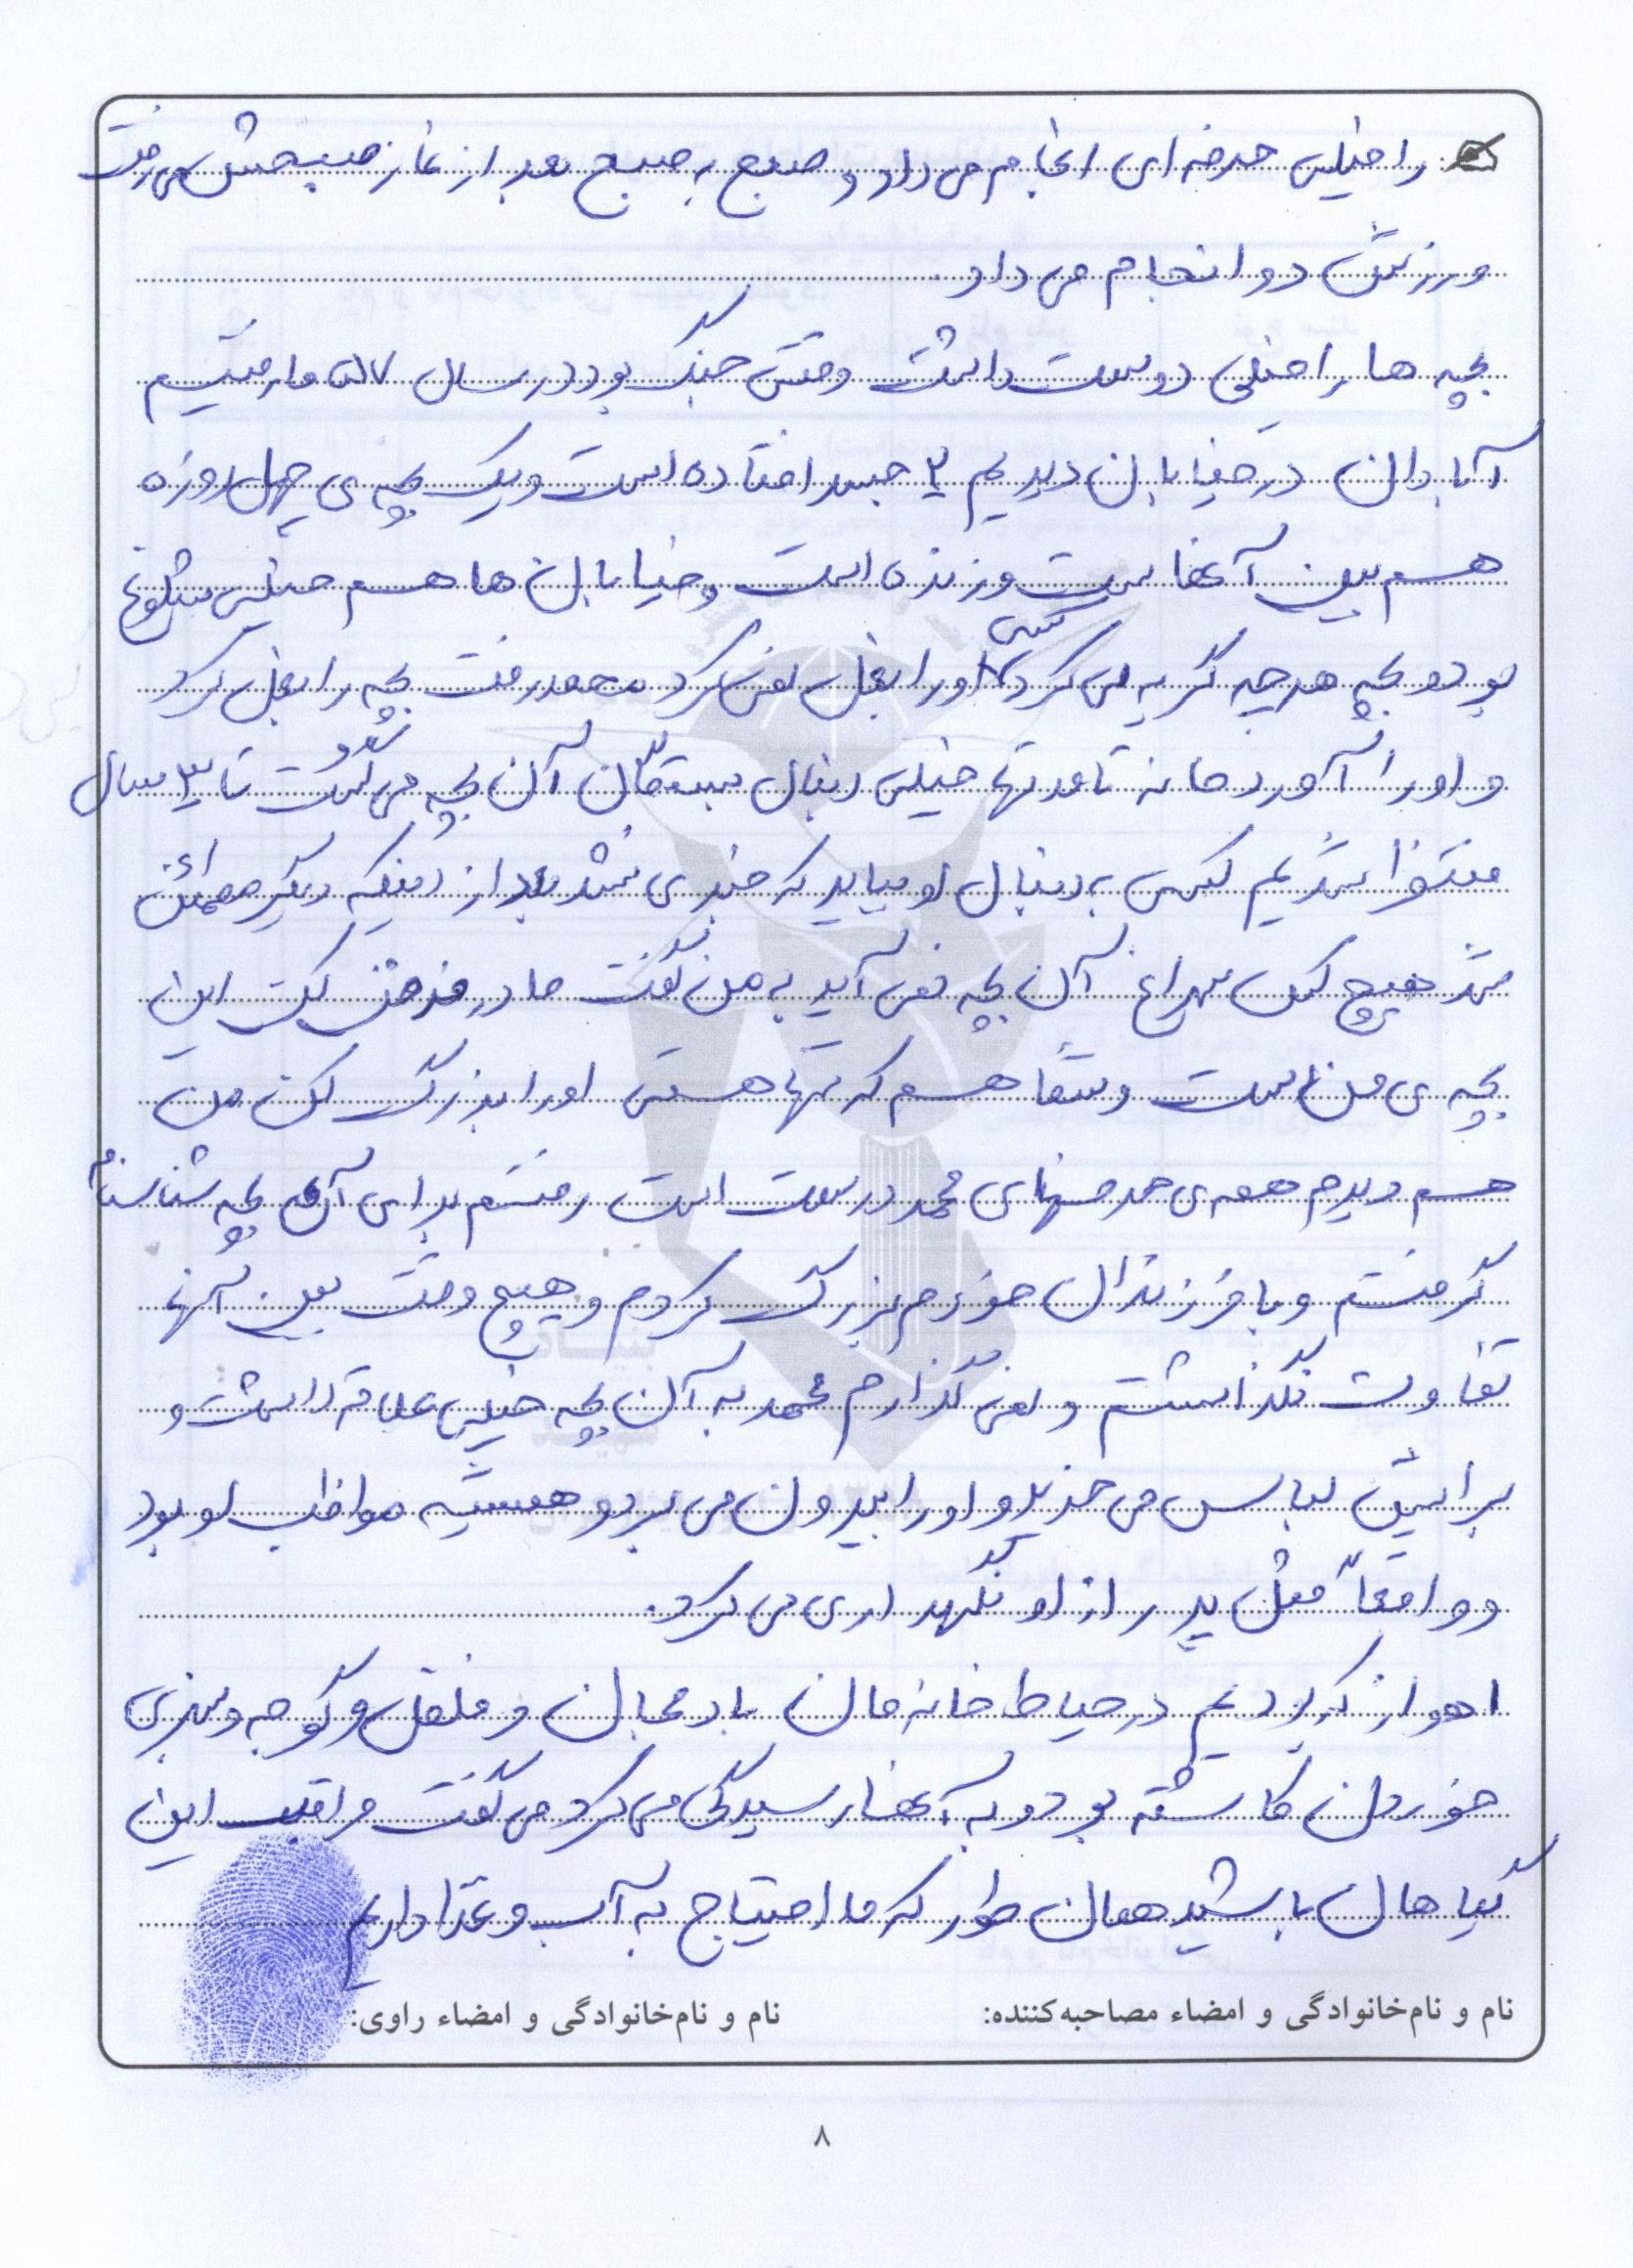 را خیلی حرفه ای انجام می داد و صبح به صبح بعد از نماز صبحش می رفت
ورزش دو انجام می داد
بچه ها را خیلی دوست داشت وقتی جنگ بود در سال ۵۷ ما رفتیم
آبادان در خیابان دیدیم ۲ جسد افتاده است و یک بچه ی چهل روزه
هم بین آنها ست و زنده است و خیابان ها هم خیلی شلوغ
بود و بچه هر چه گریه می کرد کسی او را بغل نمی کرد محمد رفت بچه را بغل کرد
و او را آورد خانه تا مدتها خیلی دنبال بستگان آن بچه می گشت تا ۳ سال
منتظر شدیم کسی به دنبال او بیاید که خبری نشد بعد از اینکه دیگر مطمئن
شد هیچ کس سراغ آن بچه نمی آید به من گفت مادر فرض کن این
بچه ی من است و شما هم که تنها هستی او را بزرگ کن من
هم دیدم همه ی حرفهای محمد درست است رفتم برای آن بچه شناسنامه
گرفتم و با فرزندان خودم بزرگ کردم و هیچ وقت بین آنها
تفاوت نگذاشتم و نمی گذارم محمد به آن بچه خیلی علاقه داشت و
برایش لباس می خرید و او را بیرون می برد و همیشه مواظب او بود
و واقعاً مثل پدر از او نگهداری می کرد.
اهواز که بودیم در حیاط خانه مان بادمجان و فلفل و گوجه و سبزی
خوردن کاشته بود و به آنها رسیدگی می کرد می گفت مراقب این
گیاهان باشید همان طور که ما احتیاج به آب و غذا داریم
نام و نام‌خانوادگی و امضاء مصاحبه‌کننده: نام و نام‌خانوادگی و امضاء راوی:
۸